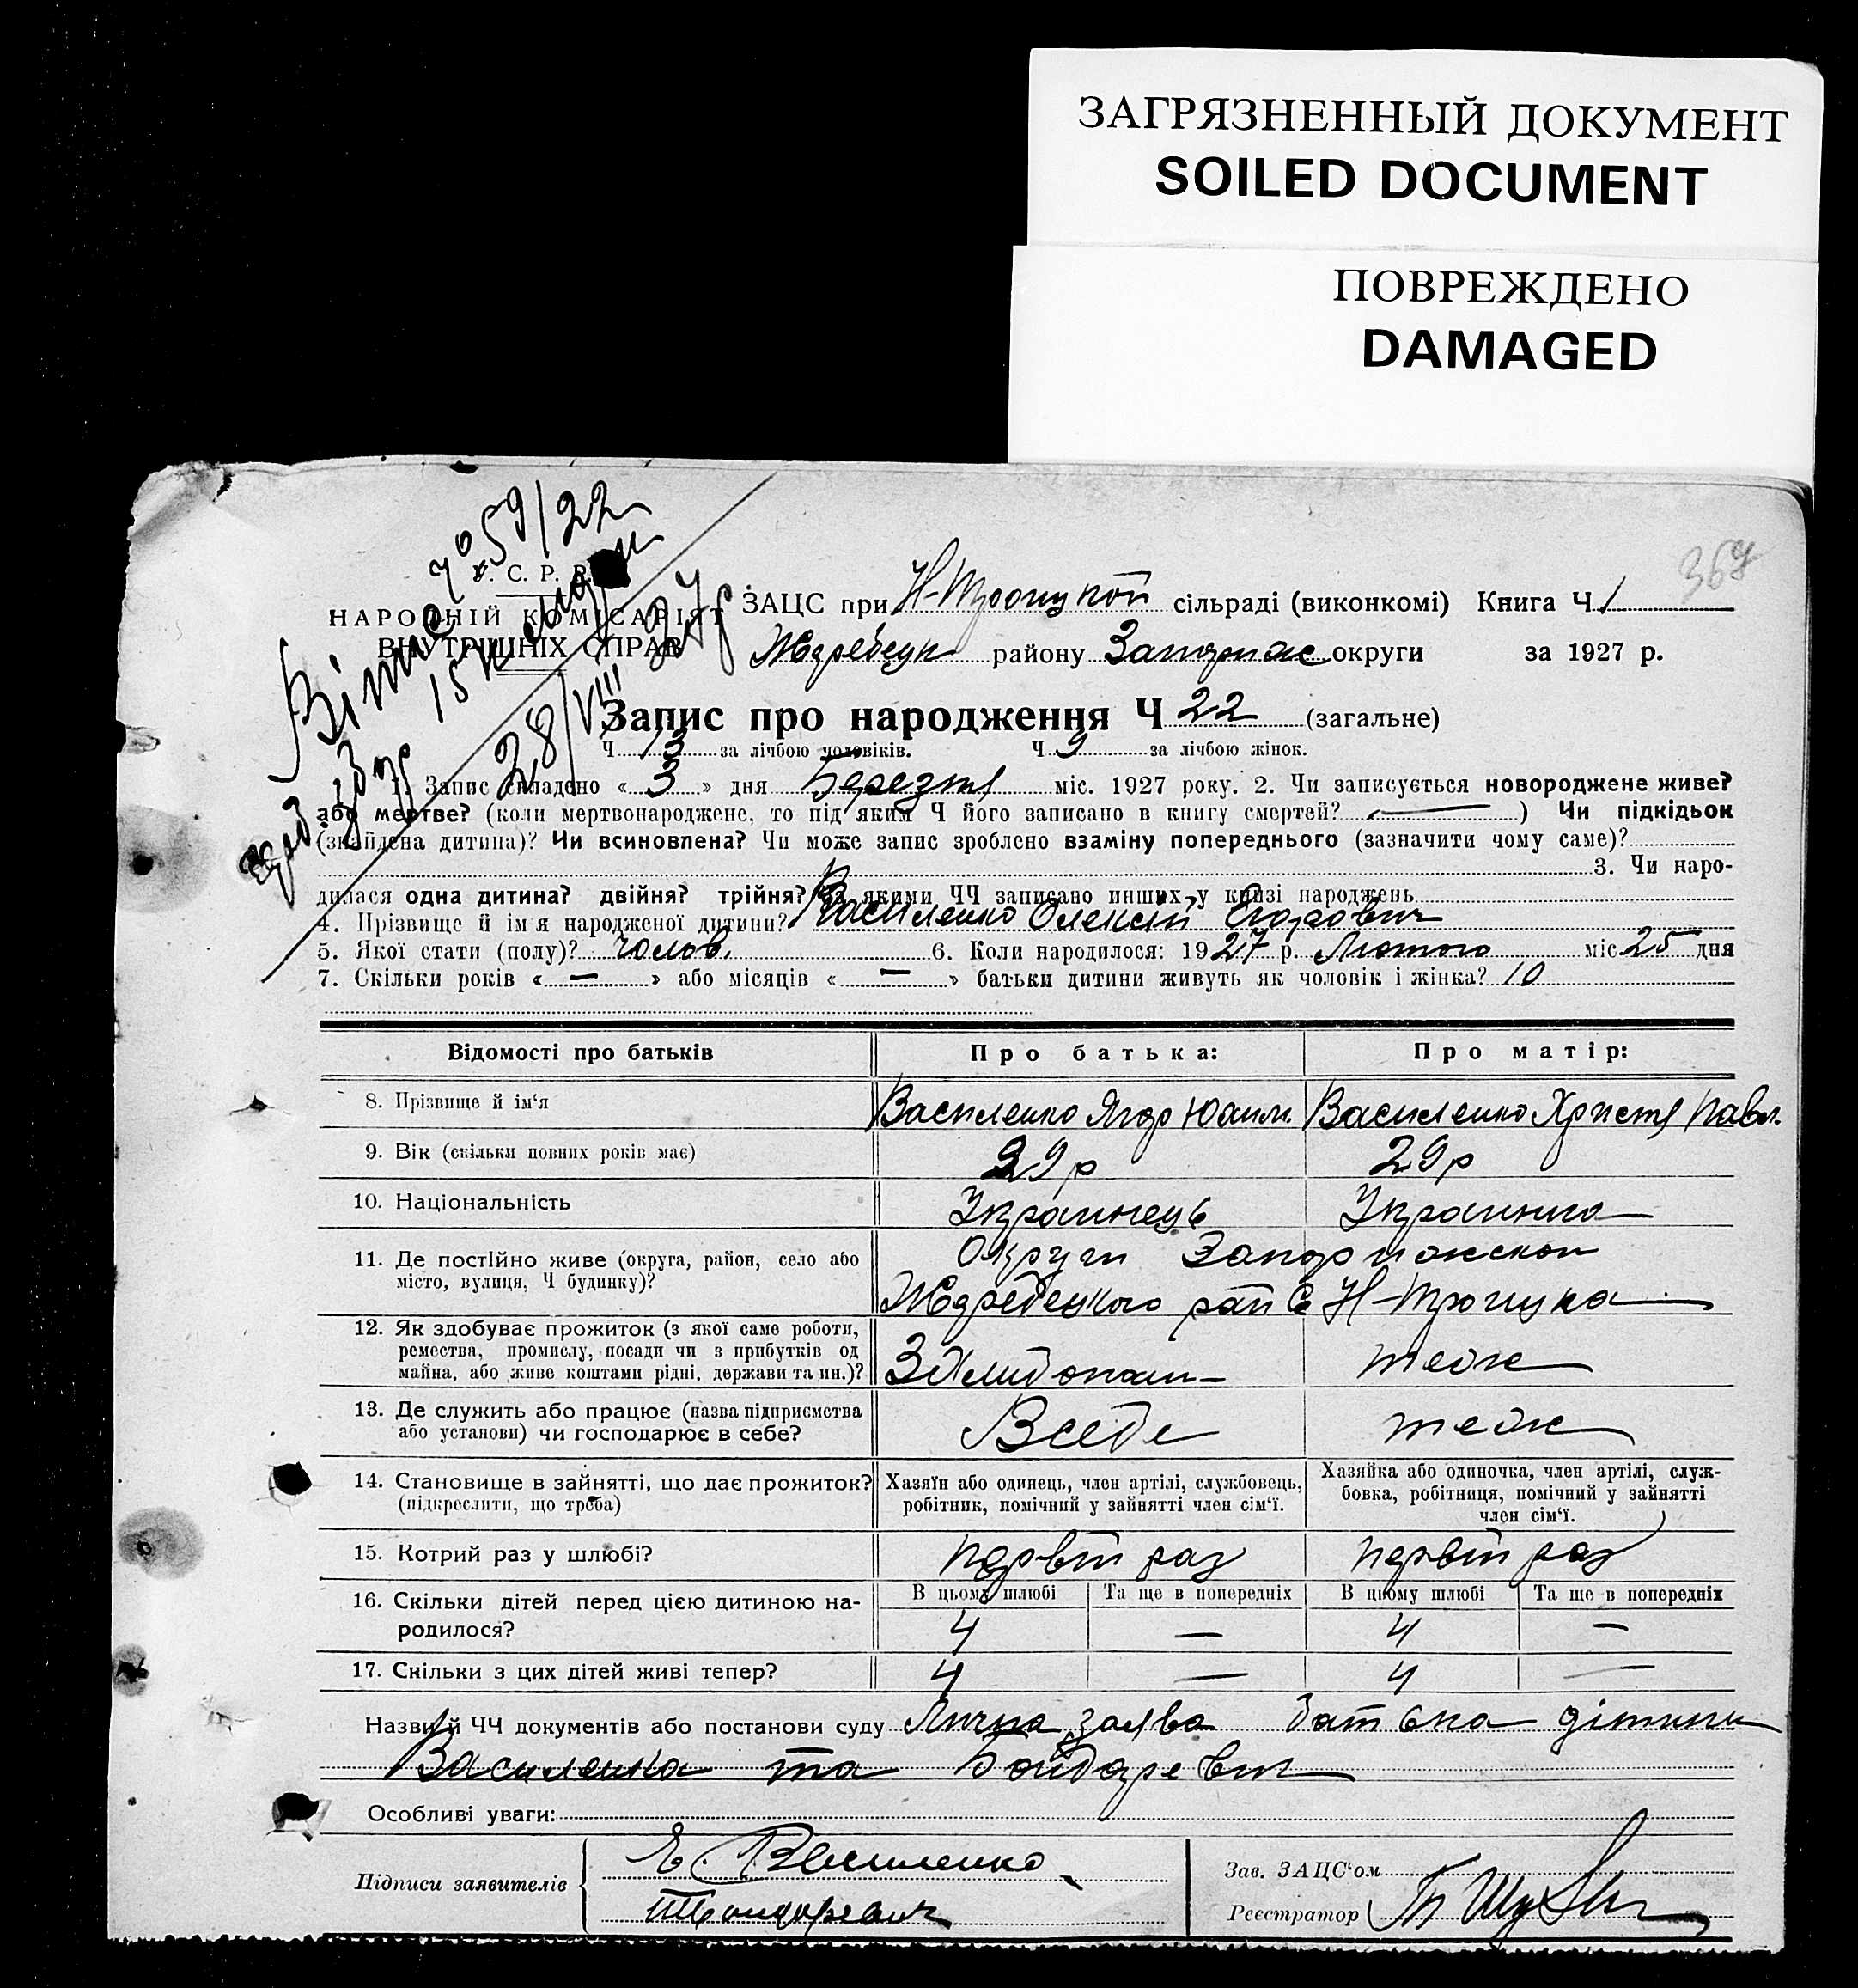 ЗАГРЯЗНЕННЫЙ ДОКУМЕНТ
SOILED DOCUMENT
ПОВРЕЖДЕНО
DAMAGED
У. С. Р. Р.
НАРОДНІЙ КОМІСАРІЯТ
ВНУТРІШНІХ СПРАВ
59/22
28/VIII 27
ЗАЦС при Н-Троицкой сільраді (виконкомі) Книга Ч 1
району округи за 1927 р.
Запис про народження Ч 22 (загальне)
Ч 13 за лічбою чоловіків. Ч 9 за лічбою жінок.
1. Запис складено « 3 » дня Березня міс. 1927 року. 2. Чи записується новороджене живе?
або мертве? (коли мертвонароджене, то під яким Ч його записано в книгу смертей? — ) Чи підкідьок
(знайдена дитина)? Чи всиновлена? Чи може запис зроблено взаміну попереднього (зазначити чому саме)?
3. Чи наро-
дилася одна дитина? двійня? трійня? За якими ЧЧ записано инших у книзі народжень
4. Прізвище й ім'я народженої дитини? Василенко Олексій Єгорович
5. Якої стати (полу)? чолов. 6. Коли народилося: 1927 р. Лютого міс 25 дня
7. Скільки років « — » або місяців « — » батьки дитини живуть як чоловік і жінка? 10
Відомості про батьків Про батька: Про матір:
8. Прізвище й ім'я Василенко Ягор Юхим. Василенко Христя Павл.
9. Вік (скільки повних років має) 29р 29р
10. Національність Украинець Украинка
11. Де постійно живе (округа, район, село або Округи
місто, вулиця, Ч будинку)? Жеребецкого рай С Н-Троицка
12. Як здобуває прожиток (з якої саме роботи,
ремества, промислу, посади чи з прибутків од
майна, або живе коштами рідні, держави та ин.)? теж
13. Де служить або працює (назва підприємства
або установи) чи господарює в себе? Всебе теж
14. Становище в зайнятті, що дає прожиток? Хазяїн або одинець, член артілі, службовець, Хазяйка або одиночка, член артілі, служ-
(підкреслити, що треба) робітник, помічний у зайнятті член сім'ї. бовка, робітниця, помічний у зайнятті
член сім'ї.
15. Котрий раз у шлюбі? первій раз первій раз
В цьому шлюбі Та ще в попередніх В цьому шлюбі Та ще в попередніх
16. Скільки дітей перед цією дитиною на-
родилося? 4 — 4 —
17. Скільки з цих дітей живі тепер? 4 — 4 —
Назви й ЧЧ документів або постанови суду Лична заява батька дітини
Василенка та
Особливі уваги:
Підписи заявителів Е. Василенко
Зав. ЗАЦС'ом
Реєстратор